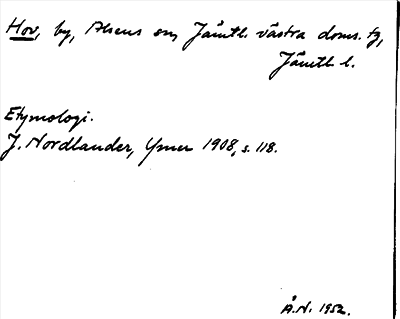 Hov, by, Alsens sn, Jämtl. västra doms. tg,
Jämtl. l.
Etymologi.
J. Nordlander, Ymer 1908, s. 118.
Å.N. 1952.